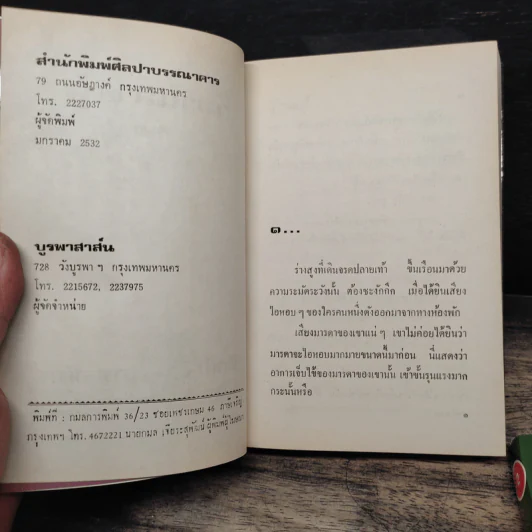 สำนักพิมพ์ศิลปาบรรณาคาร
79 ถนนอัษฎางค์ กรุงเทพมหานคร
โทร. 2227037
ผู้จัดพิมพ์
มกราคม 2532
บูรพาสาส์น
728 วังบูรพา ฯ กรุงเทพมหานคร
โทร. 2215672, 2237975
ผู้จัดจำหน่าย
พิมพ์ที่ : กมลการพิมพ์ 36/23 ซอยเพชรเกษม 46 ภาษีเจริญ
กรุงเทพฯ โทร. 4672221 นายกมล ผู้พิมพ์ผู้โฆษณา
๑...
ร่างสูงที่เดินจรดปลายเท้า ขึ้นเรือนมาด้วย
ความระมัดระวังนั้น ต้องชะงักกึก เมื่อได้ยินเสียง
ไอหอบ ๆ ของใครคนหนึ่งดังออกมาจากทางห้องพัก
เสียงมารดาของเขาแน่ ๆ เขาไม่ค่อยได้ยินว่า
มารดาจะไอหอบมากมายขนาดนี้มาก่อน นี่แสดงว่า
อาการเจ็บไข้ของมารดาของเขานั้น เข้าขั้นรุนแรงมาก
กระนั้นหรือ
๑